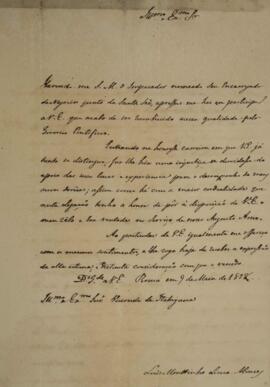 Illmo e Exmo Sr
Havendo me S. M. o Imperador nomeado Seu Encarregado
de Negocios junto da Santa Sé, apresso me em participar
a V. E. que acabo de ser reconhecido nessa qualidade pelo
Governo Pontificio.
Entrando na honrosa carreira em que V. E. já
tanto se distingue, far lhe hia uma injustiça se duvidasse do
apoio das suas luzes e experiencia para o desempenho de meus
deveres; assim como he com a maior cordialidade que
nesta Legação tenho a honra de pôr á disposição de V. E. o
meu zelo e boa vontade no Serviço do nosso Augusto Amo.
Ao particular de V. E. igualmente me offereço
com o mesmo sentimento, e lhe rogo haja de receber a expressão
da alta estima, e distincta consideração com que o venero.
Ds Gde a V. E. Roma em 9 de Maio de
Illmo e Exmo Snr Visconde de Itabayana
Luiz Moutinho Lima Alvares